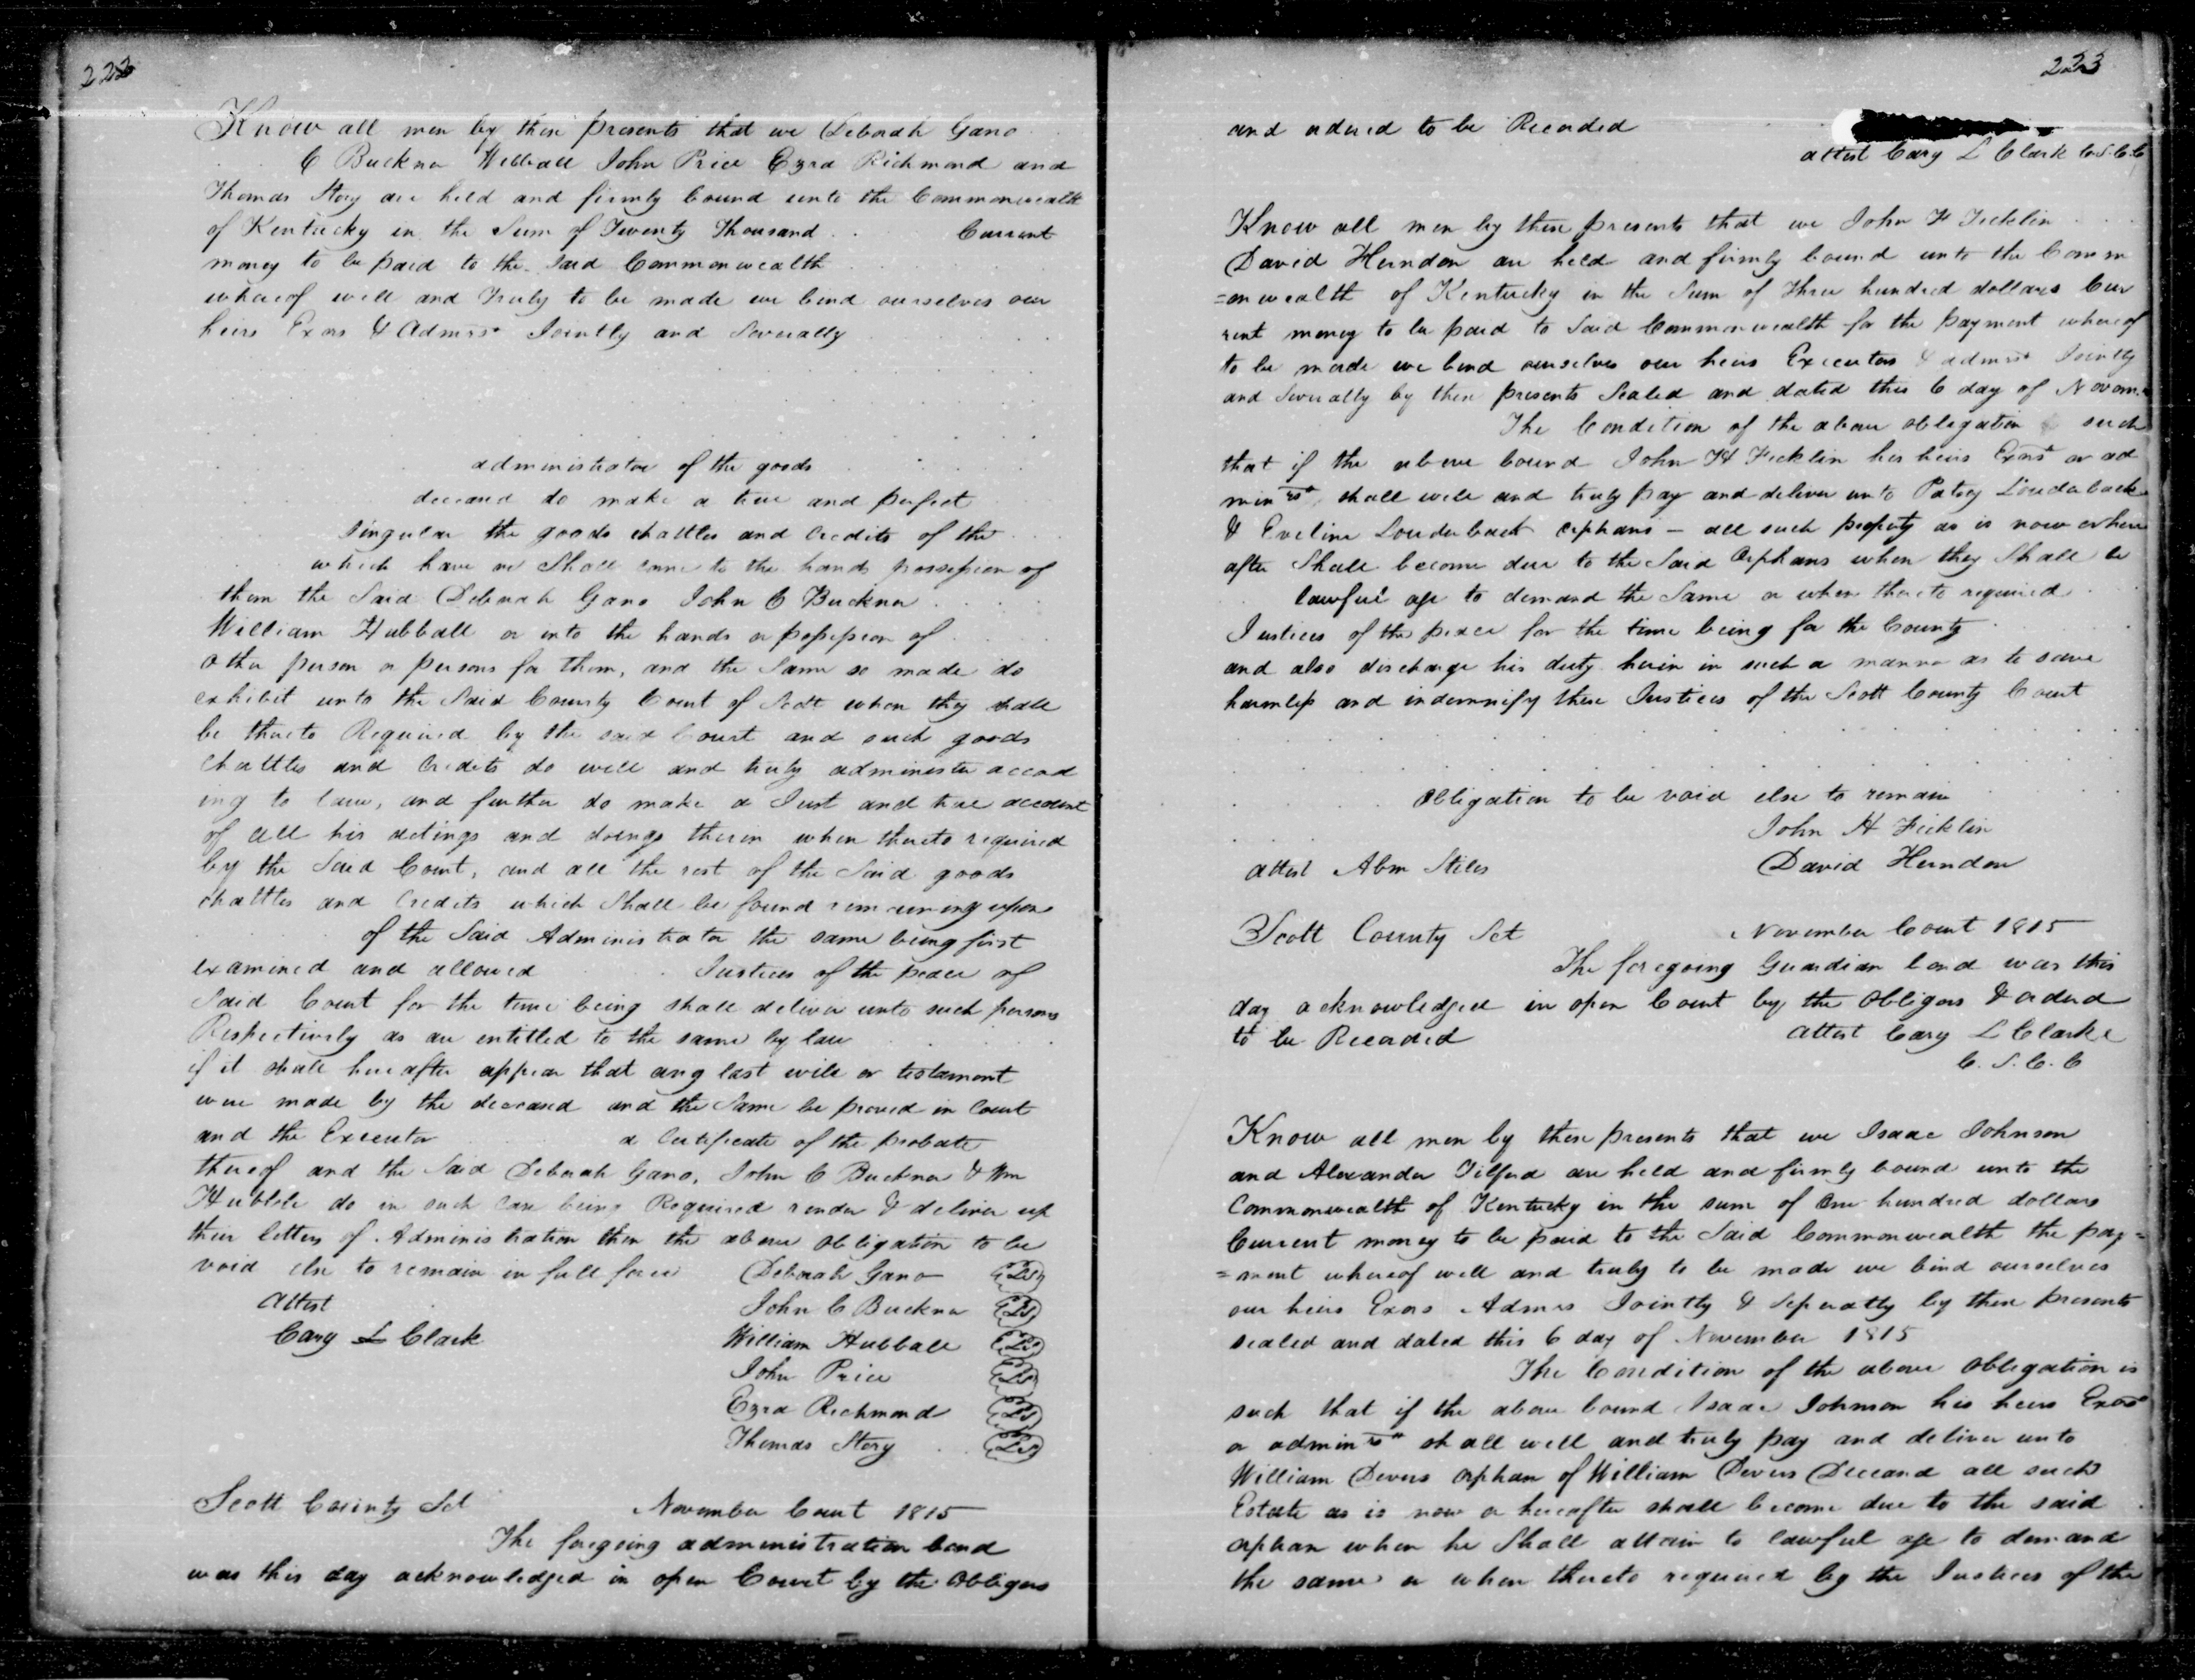 222
Know all men by these presents that we Deborah Gano
C Buckner William John Price Ezra Richmond and
Thomas Story are held and firmly bound unto the Commonwealth
of Kentucky in the Sum of Twenty Thousand . . Current
money to be paid to the Said Commonwealth
whereof well and Truly to be made we bind ourselves our
heirs Exors & Admrs Jointly and Severally
administrator of the goods
deceased do make a true and perfect
singular the goods chattles and credits of the
which have or Shall come to the hands possession of
them the Said Deborah Gano John C Buckner
William Hubball or into the hands or possession of
other person or persons for them, and the same so made do
exhibit unto the Said County Court of Scott when they shall
be thereto Required by the said Court and such goods
Chattles and Credits do well and truly administer accord
ing to law, and further do make a Just and true account
of all his actings and doings therein when thereto required
by the Said Court, and all the rest of the Said goods
chattles and credits which Shall be found remaining upon
of the Said Administrator the same being first
examined and allowed Justices of the peace of
Said Court for the time being shall deliver unto such persons
Respectively as are entitled to the same by law
if it shall hereafter appear that any last will or testament
were made by the deceased and the Same be proved in Court
and the Executor a Certificate of the probate
thereof and the Said Deborah Gano, John C Buckner & Wm
Hubble do in such case being Required render & deliver up
their letters of Administration then the above obligation to be
void else to remain in full force Deborah Gano {Ls}
Attest John C Buckner {Ls}
Cary L Clark William Hubball {Ls}
John Price {Ls}
Ezra Richmond {Ls}
Thomas Story {Ls}
Scott County Sct November Court 1815
The foregoing administration bond
was this day acknowledged in open Court by the Obligors
223
and ordered to be Recorded
attest Cary L Clark C.S.C.C
Know all men by these presents that we John H Ficklin
David Herndon are held and firmly bound unto the Comm
=onwealth of Kentucky in the Sum of Three hundred dollars Cur
rent money to be paid to Said Commonwealth for the payment whereof
to be made we bind ourselves our heirs Executors & admrs Jointly
and Severally by these presents Sealed and dated this 6 day of Novem
The Condition of the above obligation such
that if the above bound John H Ficklin his heirs Exors or ad
minrs shall well and truly pay and deliver unto Patsy Louderback
& Eveline Louderback orphans - all such property as is now or here
after Shall become due to the Said Orphans when they Shall be
lawful age to demand the Same or when thereto required
Justices of the peace for the time being for the County
and also discharge his duty herein in such a manner as to save
harmless and indemnify these Justices of the Scott County Court
obligation to be void else to remain
John H Ficklin
attest Abm Stiles David Herndon
Scott County Sct November Court 1815
The foregoing Guardian bond was this
day acknowledged in open Court by the Obligors & ordered
to be Recorded attest Cary L Clarke
C. S. C. C
Know all men by these presents that we Isaac Johnson
and Alexander Tilford are held and firmly bound unto the
Commonwealth of Kentucky in the sum of One hundred dollars
Current money to be paid to the Said Commonwealth the pay=
=ment whereof well and truly to be made we bind ourselves
our heirs Exors Admrs Jointly & Seperatly by these presents
sealed and dated this 6 day of November 1815
The Condition of the above Obligation is
such that if the above bound Isaac Johnson his heirs Exors
or adminrs shall well and truly pay and deliver unto
William Devers orphan of William Devers Deceased all such
Estate as is now or hereafter shall become due to the said
orphan when he Shall attain to lawful age to demand
the same or when thereto required by the Justices of the